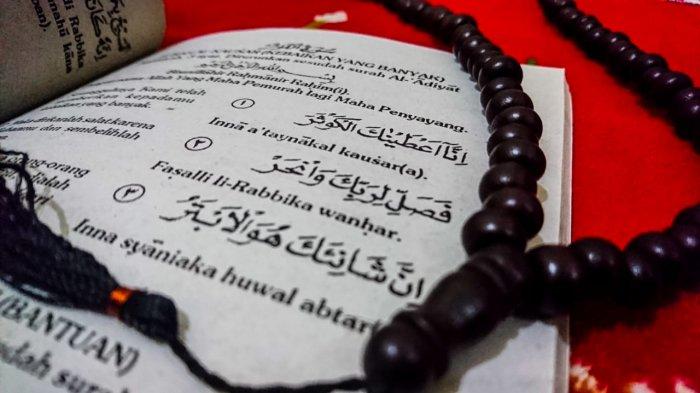 (KEBAIKAN YANG BANYAK)
Diturunkan sesudah surah Al-'Adiyat
Rahmānir Raḥīm(i).
Yang Maha Pemurah lagi Maha Penyayang.
Kami telah
kepadamu
yang banyak.
١
اِنَّآ اَعْطَيْنٰكَ الْكَوْثَرَ
Innā a'taynākal kauṡar(a).
salat karena
dan sembelihlah
٢
فَصَلِّ لِرَبِّكَ وَانْحَرْ
Faṣalli li-Rabbika wanḥar.
orang-orang
٣
اِنَّ شَانِئَكَ هُوَ الْاَبْتَرُ
Inna syāniaka huwal abtar
(BANTUAN)